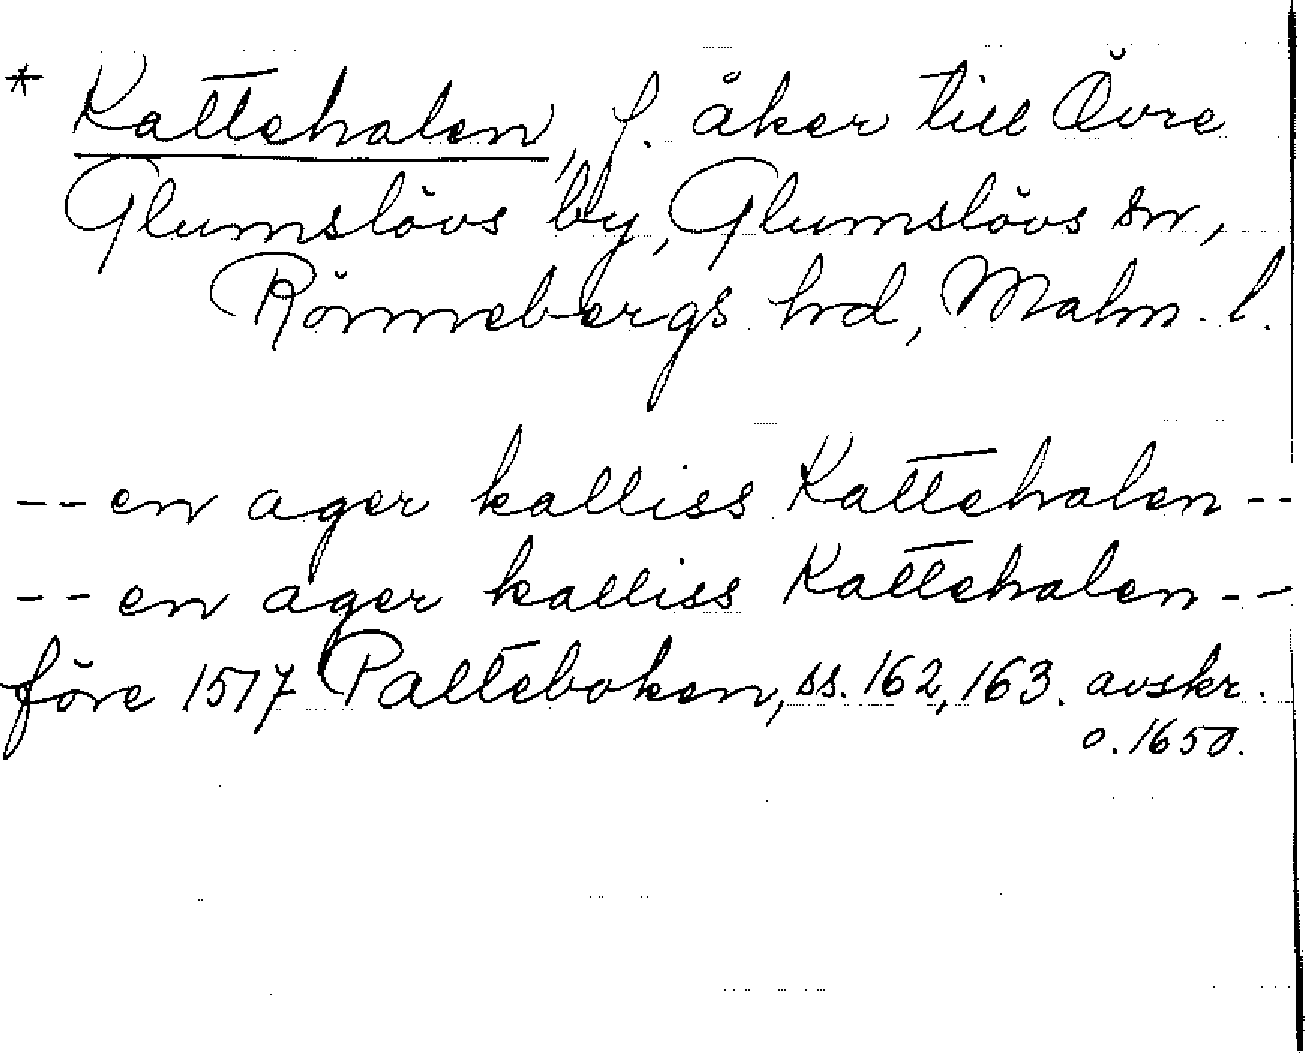 * Kattehalen, f. åker till Övre
Glumslövs by, Glumslövs sn,
Rönnebergs hd, Malm. l.
-- en ager kalliss Kattehalen --
-- en ager kalliss Kattehalen --
före 1517 Palteboken, ss. 162, 163. avskr.
o. 1650.